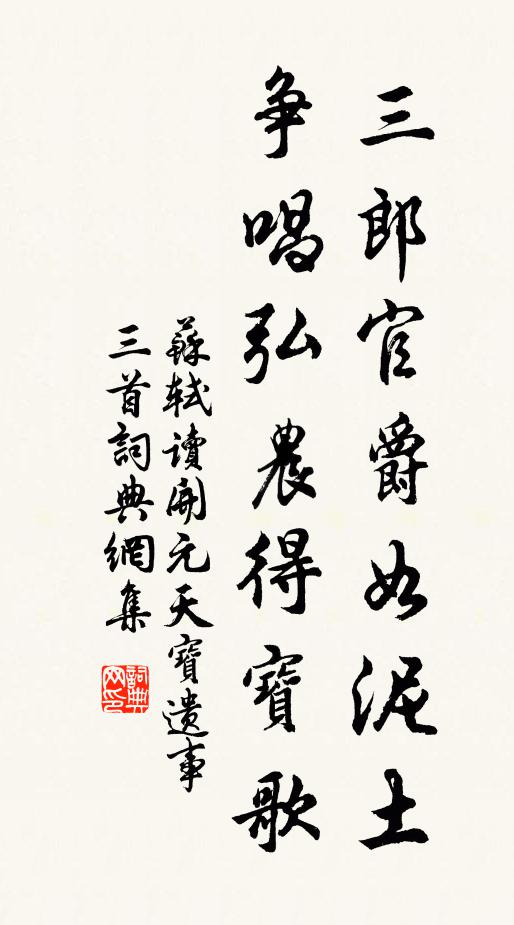 三郎官爵如泥土
争唱弘農得寶歌
蘇軾讀開元天寶遺事
三首詞典網集
詞典
网印